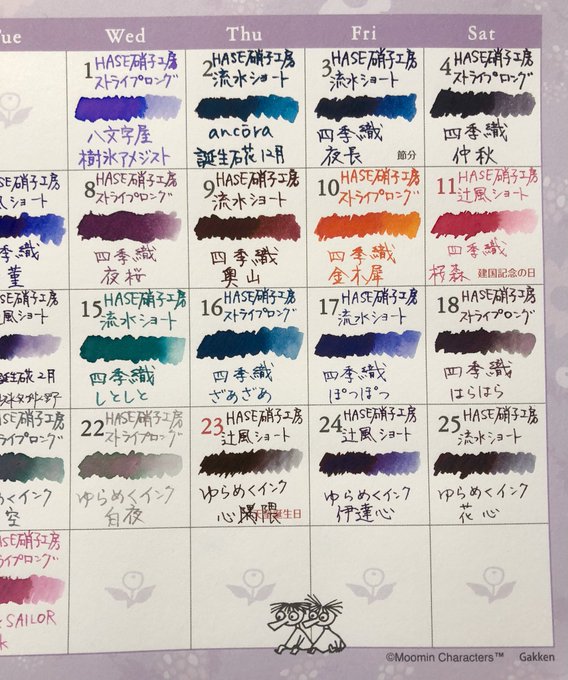 ue Wed Thu Fri Sat
1 HASE硝子工房
ストライプロング
八文字屋
樹氷アメジスト
2 HASE硝子工房
流水ショート
ancora
誕生石花12月
3 HASE硝子工房
流水ショート
四季織
夜長 節分
4 HASE硝子工房
ストライプロング
四季織
仲秋
ASE硝子工房
ショート
季織
菫
8 HASE硝子工房
ストライプロング
四季織
夜桜
9 HASE硝子工房
流水ショート
四季織
奥山
10 HASE硝子工房
ストライプロング
四季織
金木犀
11 HASE硝子工房
辻風ショート
四季織
桜森 建国記念の日
ASE硝子工房
風ショート
2月
15 HASE硝子工房
流水ショート
四季織
しとしと
16 HASE硝子工房
ストライプロング
四季織
ざあざあ
17 HASE硝子工房
流水ショート
四季織
ぽつぽつ
18 HASE硝子工房
ストライプロング
四季織
はらはら
SE硝子工房
ライプロング
めくインク
空
22 HASE硝子工房
ストライプロング
ゆらめくインク
白夜
23 HASE硝子工房
辻風ショート
ゆらめくインク
天皇誕生日
24 HASE硝子工房
辻風ショート
ゆらめくインク
伊達心
25 HASE硝子工房
流水ショート
ゆらめくインク
花心
SE硝子工房
ライプロング
SAILOR
k
©Moomin Characters™ Gakken